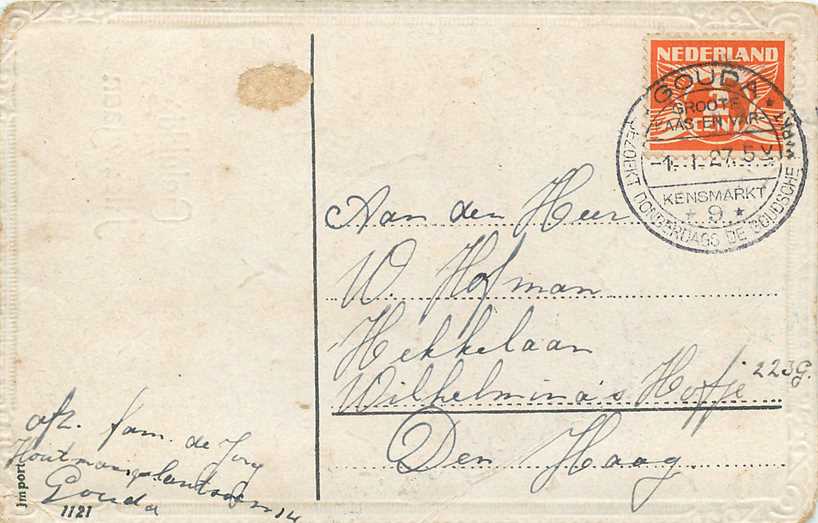 NEDERLAND
CENT
GOUDA
GROOTE
KAAS-EN VAR-
1. I. 27. 5 V
KENSMARKT
* 9 *
BEZOEKT DONDERDAGS DE GOUDSCHE MARKT
Aan den Heer
W. Hofman
Hekkelaan
Wilhelmina's Hofje 223G.
Den Haag
afz. fam. de Jong
Houtmansplantsoen 14
Gouda
Jmport
1121